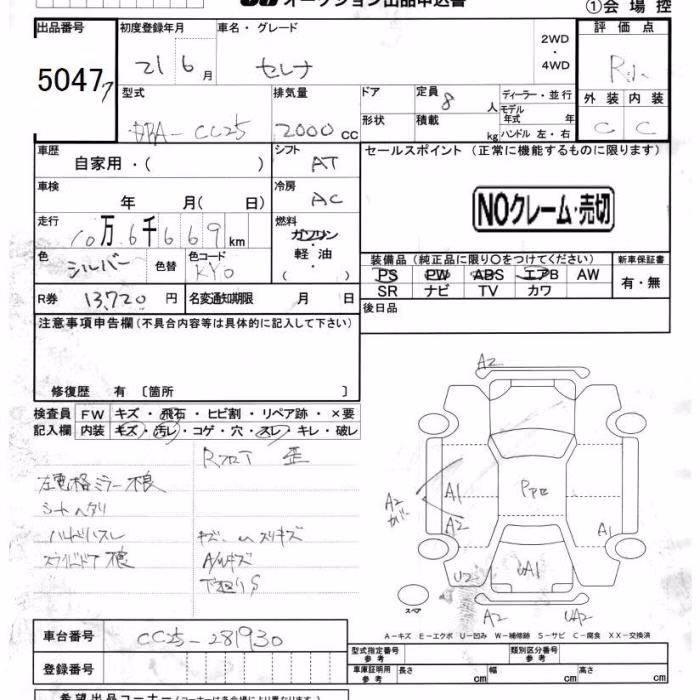 オークション出品申込書
①会場控
出品番号 初度登録年月 車名・グレード 評価点
50477 21 6 月 セレナ 2WD・4WD
型式 排気量 ドア 定員 8 人 ディーラー・並行 外装 内装
DBA-CC25 2000 cc 形状 積載 kg モデル年式 年 C C
ハンドル 左・右
車歴 自家用・( ) シフト AT セールスポイント (正常に機能するものに限ります)
車検 年 月( 日) 冷房 AC NOクレーム・売切
走行 10万6千669 km 燃料 ガソリン・軽油・( )
色 シルバー 色替 色コード KY0
装備品 (純正品に限り○をつけてください) 新車保証書
PS PW ABS エアB AW 有・無
SR ナビ TV カワ
R券 13,720 円 名変通知期限 月 日 後日品
注意事項申告欄 (不具合内容等は具体的に記入して下さい)
修復歴 有 〔箇所 〕
検査員 FW キズ・飛石・ヒビ割・リペア跡・×要
記入欄 内装 キズ・汚レ・コゲ・穴・スレ・キレ・破レ
左電格ミラー不良
シートヘタリ
ハンドルスレ
スライドドア
A/Wキズ
下廻りS
A2
A2
カバー
A1
A2
A1
U2
UA1
A2
UA2
スペア
A-キズ E-エクボ U-凹み W-補修跡 S-サビ C-腐食 XX-交換済
車台番号 CC25-281930
登録番号
型式指定番号 参考 類別区分番号 参考
車庫証明用 参考 長さ cm 幅 cm 高さ cm
希望出品コーナー